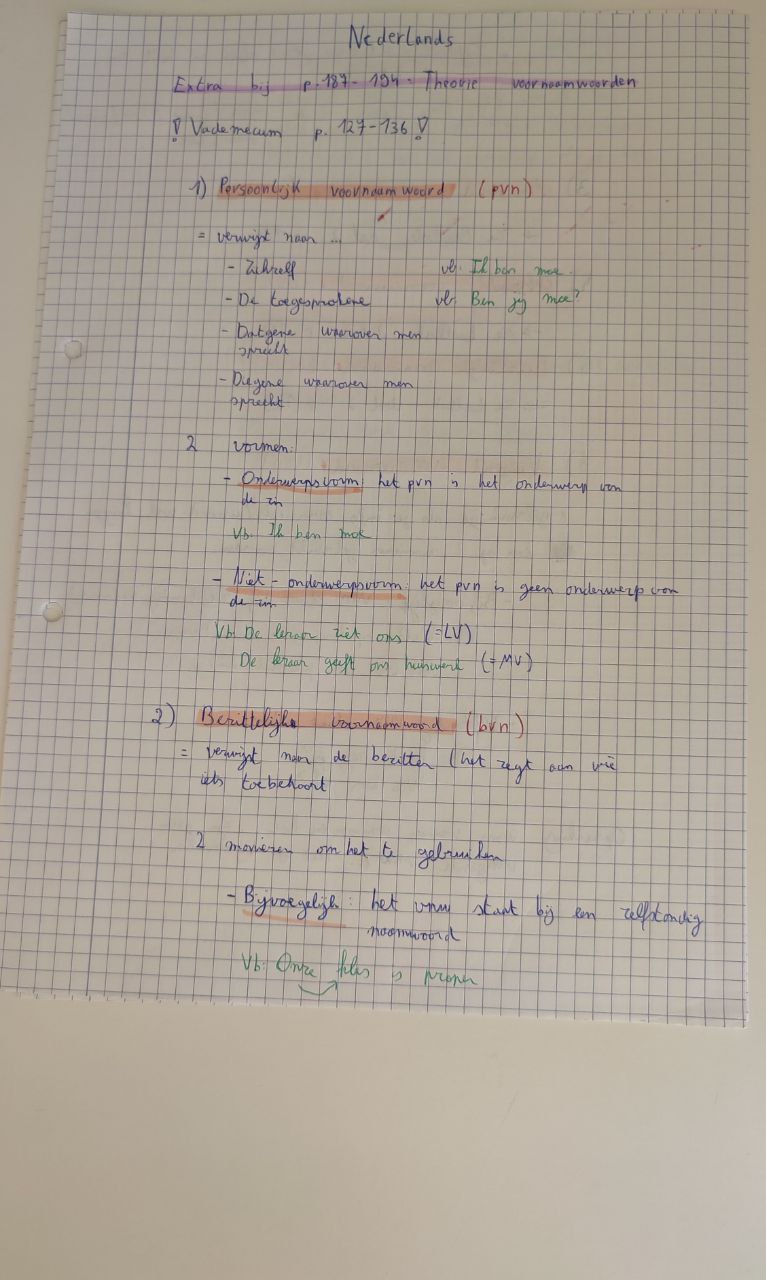 Nederlands
Extra bij p. 187 - 194 - Theorie voornaamwoorden
! Vademecum p. 127-136 !
1) Persoonlijk voornaamwoord (pvn)
= verwijst naar ...
- Zichzelf vb. Ik ben moe.
- De toegesprokene vb. Ben jij moe?
- Datgene waarover men
spreekt
- Diegene waarover men
spreekt
2 vormen:
- Onderwerpsvorm: het pvn is het onderwerp van
de zin
Vb. Ik ben moe
- Niet-onderwerpsvorm: het pvn is geen onderwerp van
de zin
Vb: De leraar ziet ons (=LV)
De leraar geeft ons huiswerk (=MV)
2) Bezittelijk voornaamwoord (bvn)
= verwijst naar de bezitter (het zegt aan wie
iets toebehoort
2 manieren om het te gebruiken
- Bijvoegelijk: het vnw staat bij een zelfstandig
naamwoord
Vb: Onze is proper